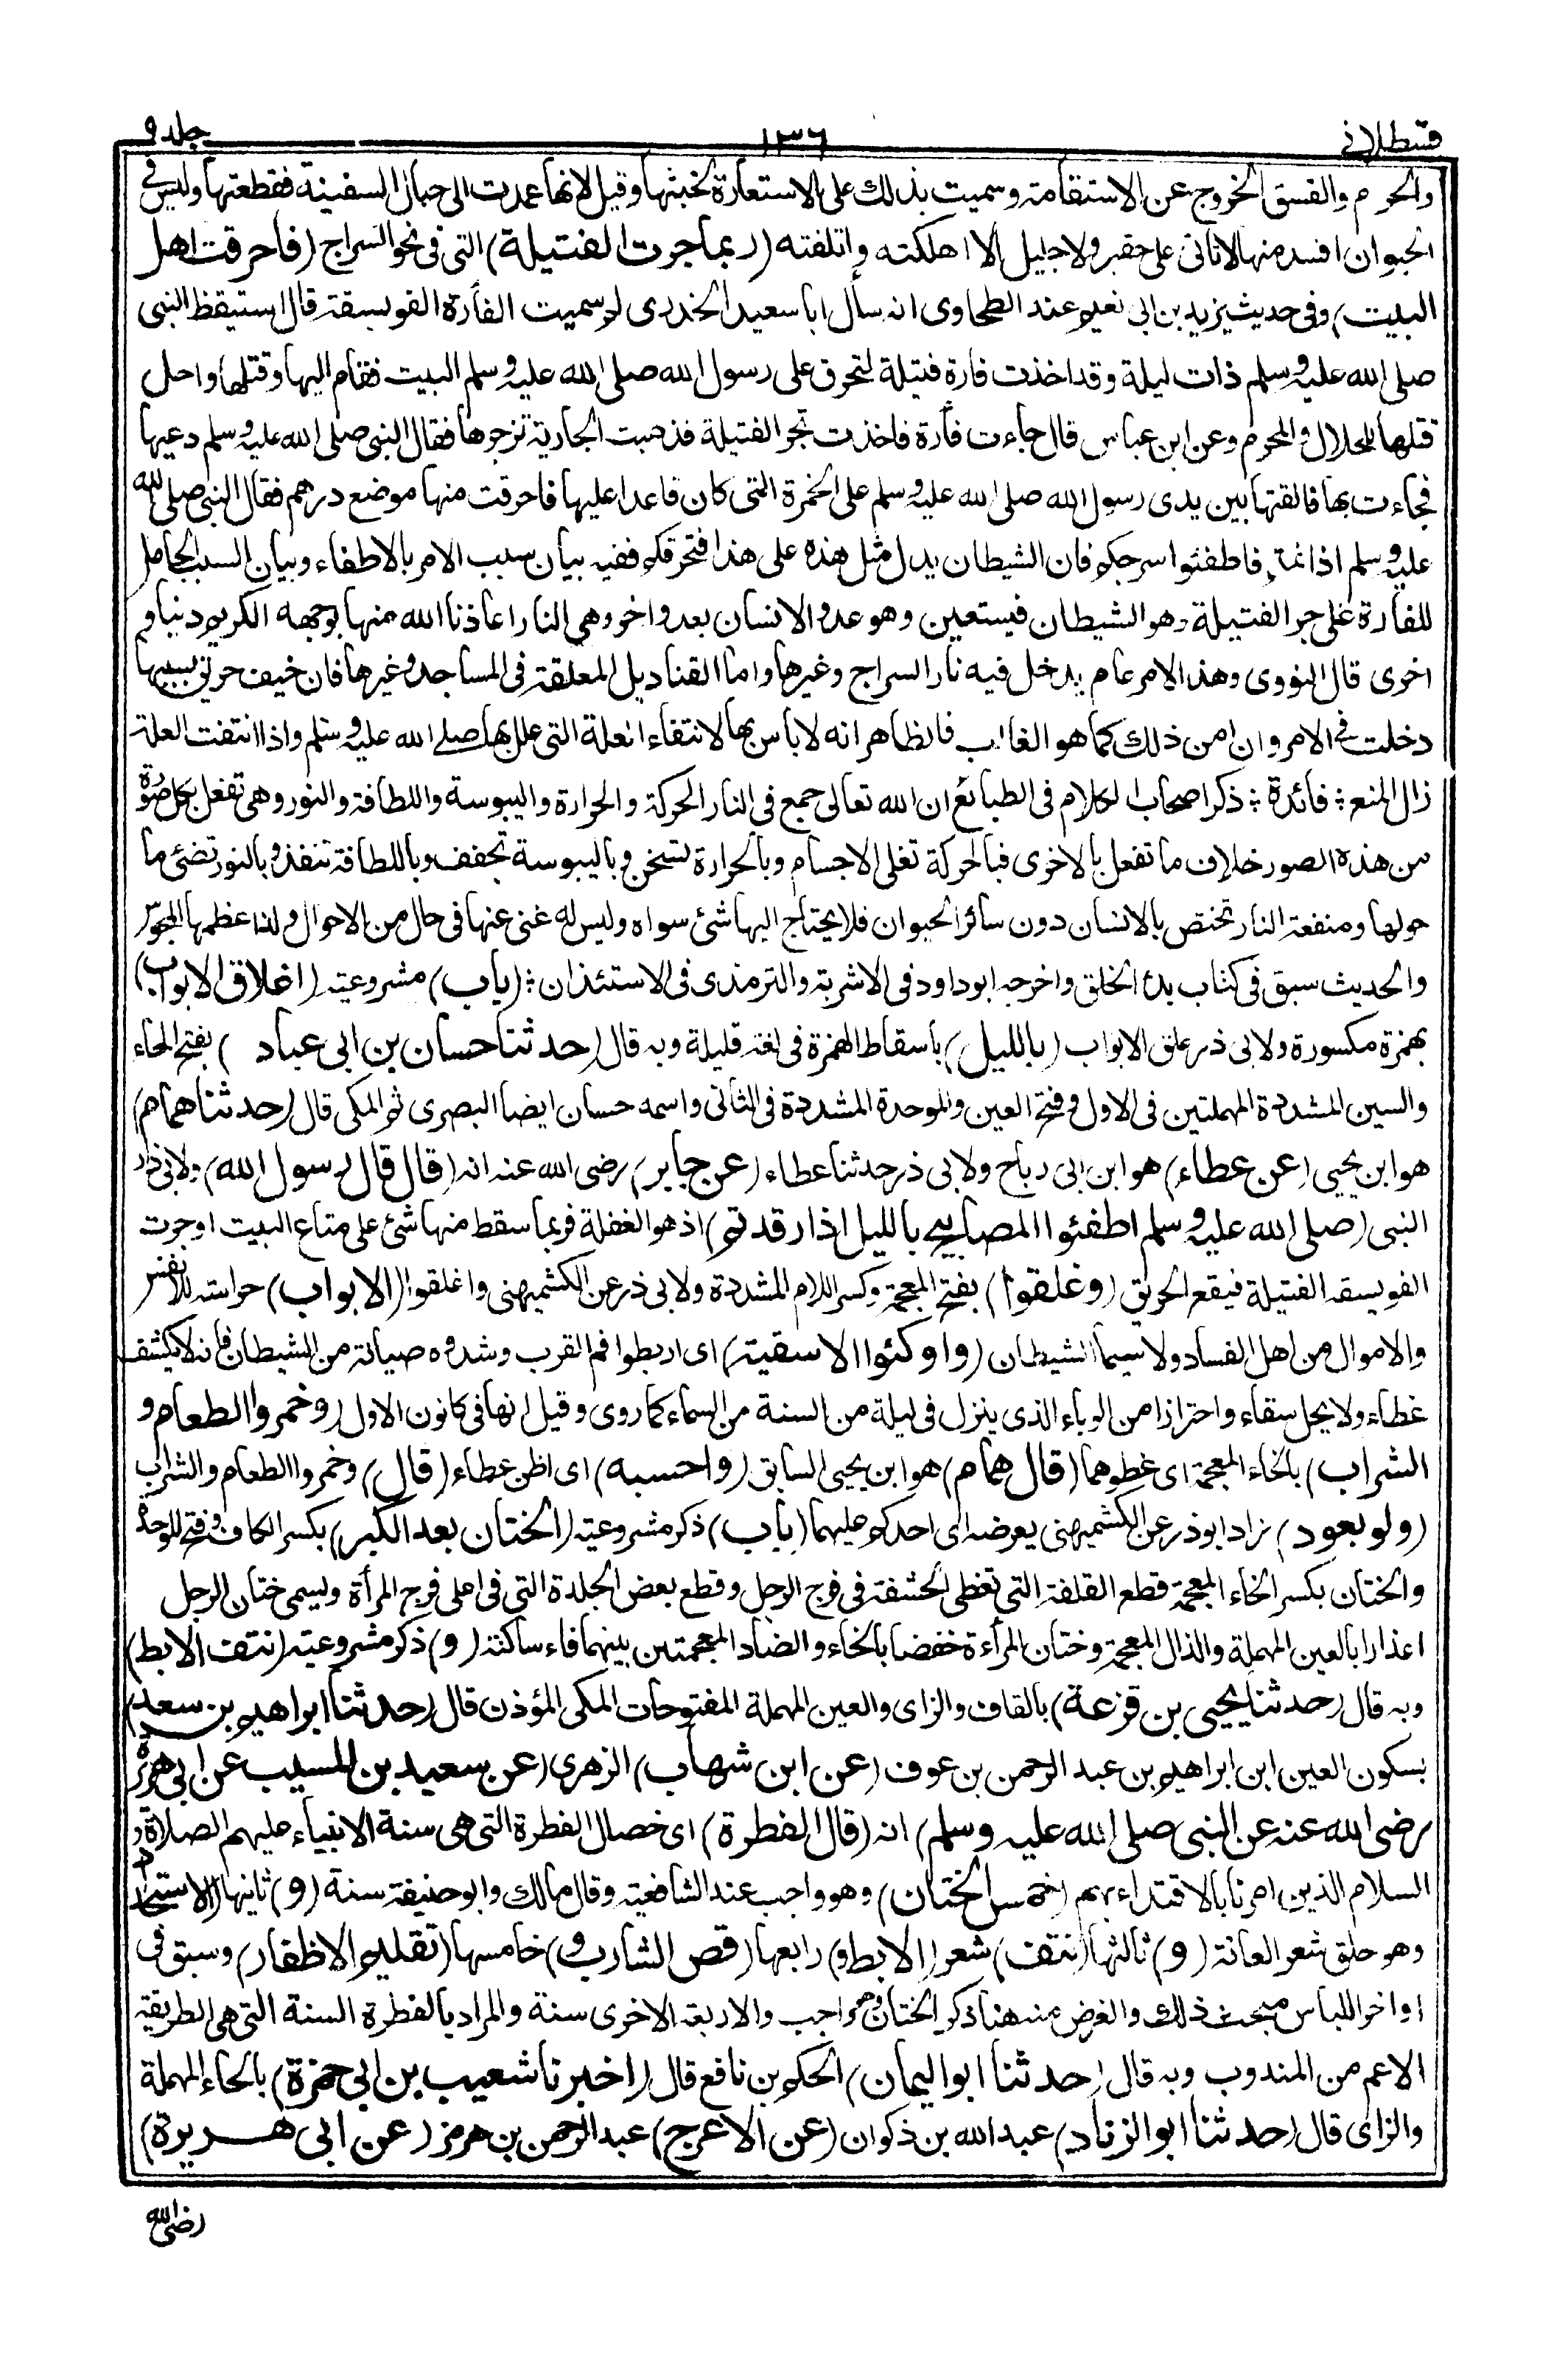 قسطلانى ١٣٦ جلد ٩
والحرم والفسق الخروج عن الاستقامة وسميت بذلك على الاستعارة لخبثها وقيل لانها عمدت الى حبال السفينة فقطعتها وليس فى
الحيوان افسد منها لا تاتى على حقير ولا جليل الا اهلكته واتلفته (ربما جرت الفتيلة) التى فى نحو السراج (فاحرقت اهل
البيت) وفى حديث يزيد بن ابى نعيم عند الطحاوى انه سأل ابا سعيد الخدرى لم سميت الفأرة الفويسقة قال استيقظ النبى
صلى الله عليه وسلم ذات ليلة وقد اخذت فارة فتيلة لتحرق على رسول الله صلى الله عليه وسلم البيت فقام اليها وقتلها واحل
قتلها للحلال والمحرم وعن ابن عباس قال جاءت فأرة فاخذت تجر الفتيلة فذهبت الجارية تزجرها فقال النبى صلى الله عليه وسلم دعيها
فجاءت بها فالقتها بين يدى رسول الله صلى الله عليه وسلم على الخمرة التى كان قاعدا عليها فاحرقت منها موضع درهم فقال النبى صلى الله
عليه وسلم اذا نمتم فاطفئوا سرجكم فان الشيطان يدل مثل هذه على هذا فتحرقكم ففيه بيان سبب الامر بالاطفاء وبيان السبب الحامل
للفأرة على جر الفتيلة وهو الشيطان فيستعين وهو عدو الانسان بعدو اخر وهى النار اعاذنا الله منها بوجهه الكريم دنيا و
اخرى قال النووى وهذا الامر عام يدخل فيه نار السراج وغيرها واما القناديل المعلقة فى المساجد وغيرها فان خيف حريق بسببها
دخلت فى الامر وان امن ذلك كما هو الغالب فالظاهر انه لا باس بها لانتفاء العلة التى علل بها صلى الله عليه وسلم واذا انتفت العلة
زال المنع : فائدة : ذكر اصحاب الكلام فى الطبائع ان الله تعالى جمع فى النار الحركة والحرارة واليبوسة واللطافة والنور وهى تفعل بكل صورة
من هذه الصور خلاف ما تفعل بالاخرى فبالحركة تغلى الاجسام وبالحرارة تسخن وباليبوسة تجفف وباللطافة تنفذ وبالنور تضئ ما
حولها ومنفعة النار تختص بالانسان دون سائر الحيوان فلا يحتاج اليها شئ سواه وليس له غنى عنها فى حال من الاحوال ولذا عظمها المجوس
والحديث سبق فى كتاب بدء الخلق واخرجه ابو داود فى الاشربة والترمذى فى الاستئذان : (باب) مشروعية (اغلاق الابواب)
بهمزة مكسورة ولابى ذر غلق الابواب (بالليل) باسقاط الهمزة فى لغة قليلة وبه قال (حدثنا حسان بن ابى عباد) بفتح الحاء
والسين المشددة المهملتين فى الاول وفتح العين والموحدة المشددة فى الثانى واسمه حسان ايضا البصرى ثم المكى قال (حدثنا همام)
هو ابن يحيى (عن عطاء) هو ابن ابى رباح ولابى ذر حدثنا عطاء (عن جابر) رضى الله عنه انه (قال قال رسول الله) ولابى ذر
النبى (صلى الله عليه وسلم اطفئوا المصابيح بالليل اذا رقدتم) اذ هو الغفلة فربما سقط منها شئ على متاع البيت او جرت
الفويسقة الفتيلة فيقع الحريق (وغلقوا) بفتح المعجمة وكسر اللام المشددة ولابى ذر عن الكشميهنى واغلقوا (الابواب) حراسة للانفس
والاموال من اهل الفساد ولا سيما الشيطان (واوكئوا الاسقية) اى اربطوا فم القرب وشدوه صيانة من الشيطان فانه لا يكشف
غطاء ولا يحل سقاء واحترازا من الوباء الذى ينزل فى ليلة من السنة من السماء كما روى وقيل انها فى كانون الاول (وخمروا الطعام و
الشراب) بالخاء المعجمة اى غطوهما (قال همام) هو ابن يحيى السابق (واحسبه) اى اظن عطاء (قال) وخمروا الطعام والشراب
(ولو بعود) زاد ابو ذر عن الكشميهنى يعرضه اى احدكم عليهما (باب) ذكر مشروعية (الختان بعد الكبر) بكسر الكاف وفتح الموحدة
والختان بكسر الخاء المعجمة قطع القلفة التى تغطى الحشفة فى فرج الرجل وقطع بعض الجلدة التى فى اعلى فرج المرأة ويسمى ختان الرجل
اعذارا بالعين المهملة والذال المعجمة وختان المرأة خفضا بالخاء والضاد المعجمتين بينهما فاء ساكنة (و) ذكر مشروعية (نتف الابط)
وبه قال (حدثنا يحيى بن قزعة) بالقاف والزاى والعين المهملة المفتوحات المكى المؤذن قال (حدثنا ابراهيم بن سعد)
بسكون العين ابن ابراهيم بن عبد الرحمن بن عوف (عن ابن شهاب) الزهرى (عن سعيد بن المسيب عن ابى هريرة
رضى الله عنه عن النبى صلى الله عليه وسلم) انه (قال الفطرة) اى خصال الفطرة التى هى سنة الانبياء عليهم الصلاة و
السلام الذين امرنا بالاقتداء بهم (خمس الختان) وهو واجب عند الشافعية وقال مالك وابو حنيفة سنة (و) ثانيها (الاستحداد)
وهو حلق شعر العانة (و) ثالثها (نتف) شعر (الابط و) رابعها (قص الشارب و) خامسها (تقليم الاظفار) وسبق فى
اواخر اللباس مبحث ذلك والغرض منه هنا ذكر الختان وهو واجب والاربعة الاخرى سنة والمراد بالفطرة السنة التى هى الطريقة
الاعم من المندوب وبه قال (حدثنا ابو اليمان) الحكم بن نافع قال (اخبرنا شعيب بن ابى حمزة) بالحاء المهملة
والزاى قال (حدثنا ابو الزناد) عبد الله بن ذكوان (عن الاعرج) عبد الرحمن بن هرمز (عن ابى هريرة)
رضى الله